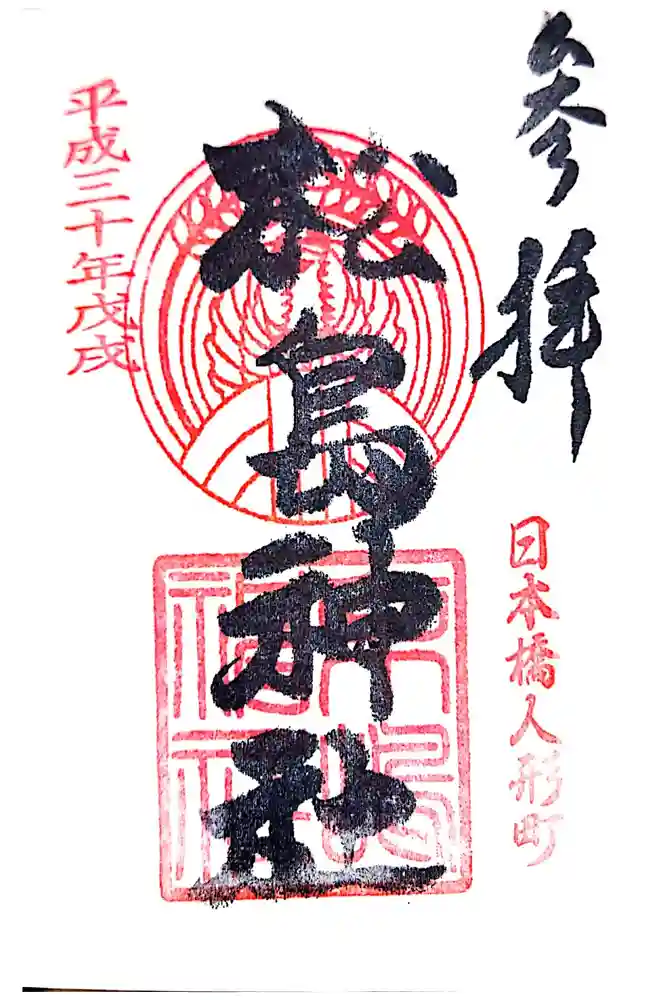 参拝
日本橋人形町
松島神社
松島神社
平成三十年戊戌